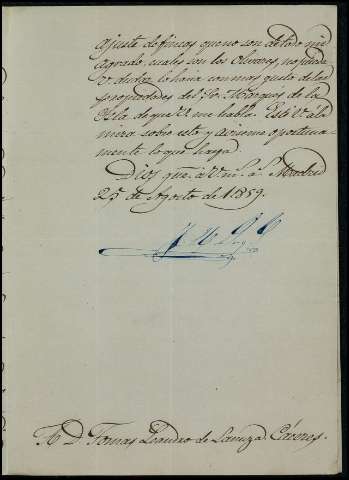 ajuste de fincas que no son de todo mi
agrado, cuales son los Olivares, no puede
V. dudar lo haria con mas gusto de las
propiedades del Sr. Marqués de la
Isla de que V. me habla. Esté V. á la
mira sobre esto y aviseme oportuna-
mente lo que haya.
Dios gue. á V. m. a. Madrid
29 de Agosto de 1859.
A D. Tomas Leandro de Lanuza. Cáceres.